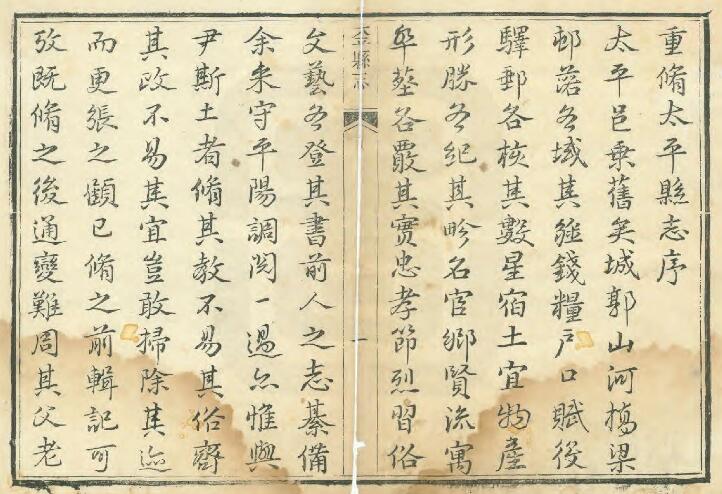 重脩太平縣志序
太平邑乘舊矣城郭山河橋梁
邨落各域其錢糧戶口賦役
驛郵各核其數星宿土宜物產
形勝各紀其畛名宦鄉賢流寓
墓各覈其實忠孝節烈習俗
縣志
一
文藝各登其書前人之志綦備
余來守平陽調閱一過亦惟與
尹斯土者脩其教不易其俗齊
其政不易其宜豈敢掃除其迹
而更張之顧已脩之前輯記可
攷既脩之後通變難周其父老